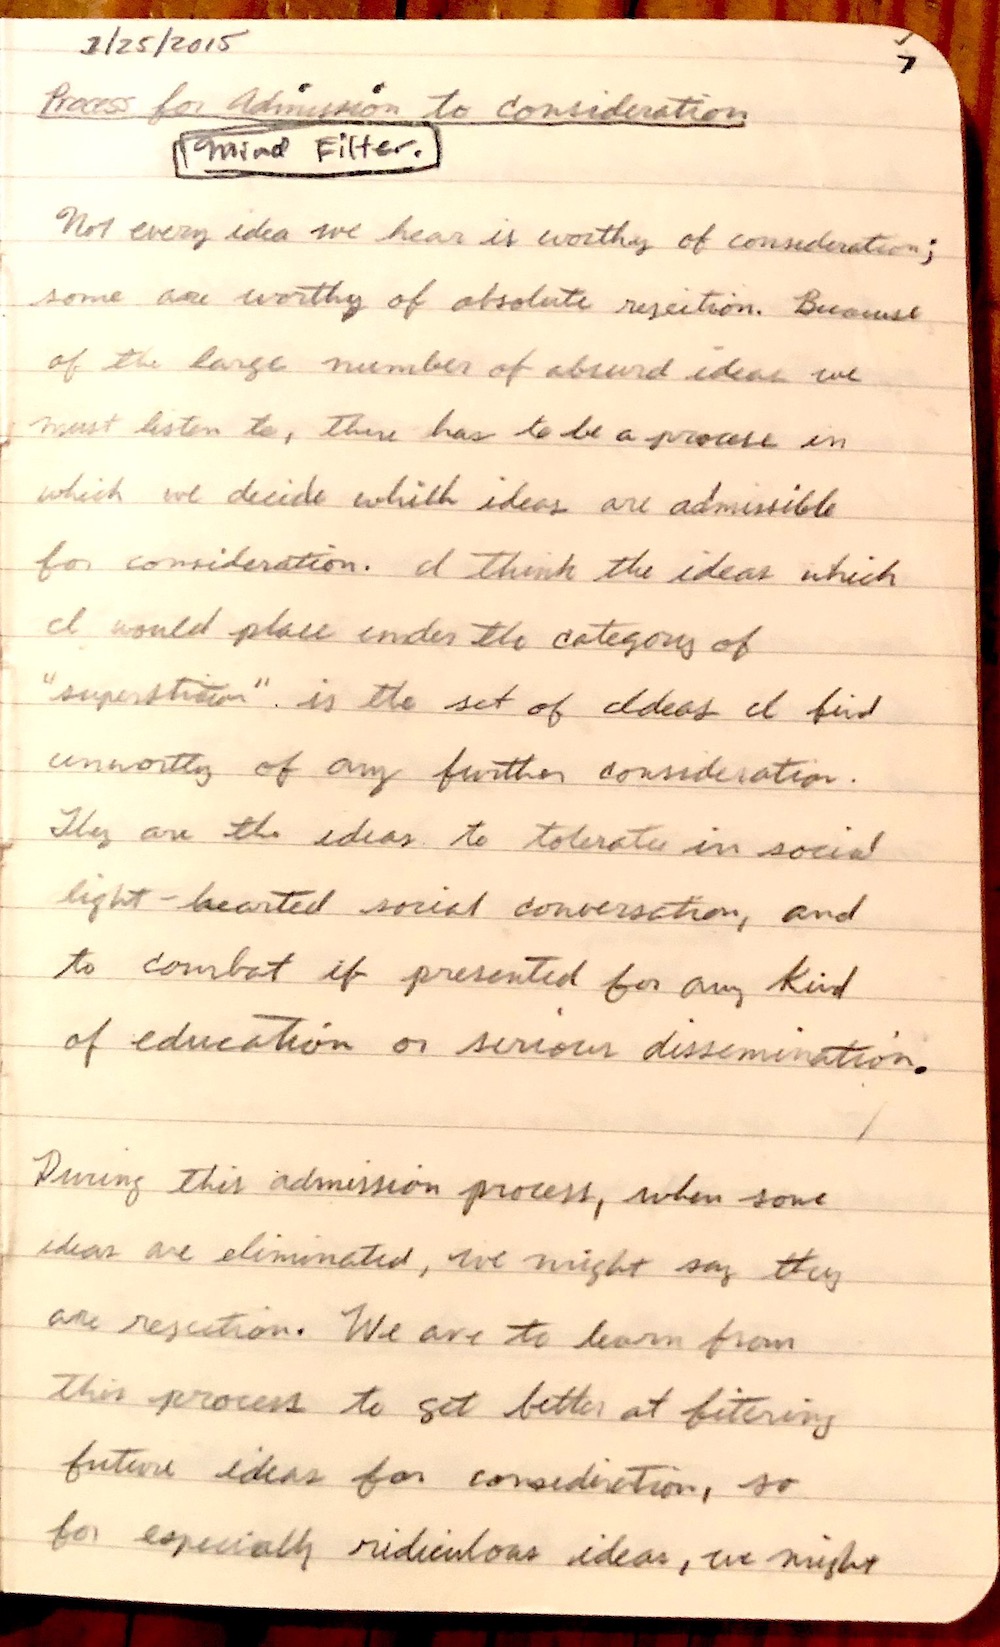 1/25/2015
7
Process for Admission to consideration
Mind Filter.
Not every idea we hear is worthy of consideration;
some are worthy of absolute rejection. Because
of the large number of absurd ideas we
must listen to, there has to be a process in
which we decide which ideas are admissible
for consideration. I think the ideas which
I would place under the category of
"superstition". is the set of Ideas I find
unworthy of any further consideration.
They are the ideas to tolerate in social
light-hearted social conversation, and
to combat if presented for any kind
of education or serious dissemination.
During this admission process, when some
ideas are eliminated, we might say they
are rejection. We are to learn from
this process to get better at fitering
future ideas for consideration, so
for especially ridiculous ideas, we might